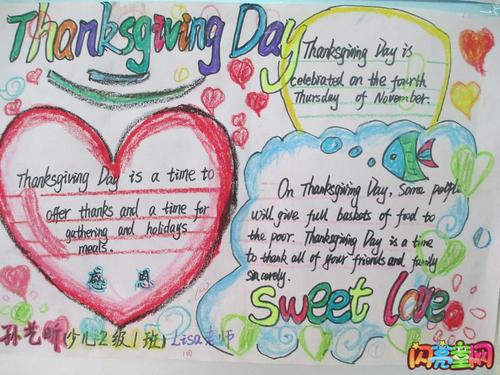 Thanksgiving Day
Thanksgiving Day is
celebrated on the fourth
Thursday of November.
Thanksgiving Day is a time to
offer thanks and a time for
gathering and holidays
meals.
感恩
On Thanksgiving Day, some people
will give full baskets of food to
the poor. Thanksgiving Day is a time
to thank all of your friends and family
sincerely.
Sweet love
孙艺昕(少儿2级1班) Lisa老师
闪亮童网